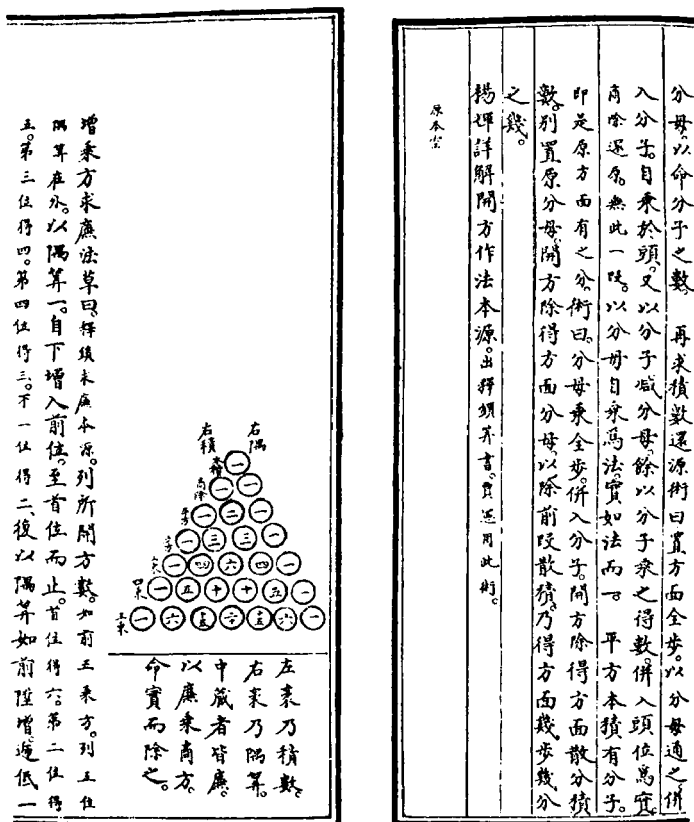 分母。以命分子之數。　再求積數還源術曰置方面全步。以分母通之。併
入分子。自乘於頭。又以分子減分母。餘以分子乘之得數。併入頭位為實。
商除還原。無此一段。以分母自乘為法。實如法而一。　平方本積有分子。
即是原方面有之分。術曰。分母乘全步。併入分子。開方除得方面散分積
數。別置原分母。開方除得方面分母。以除前段散積。乃得方面幾步幾分
之幾。
楊輝詳解開方作法本源。出釋鎖筭書。賈憲用此術。
原本空
右隅
右積
本積 一
商除 一 一
平方 一 二 一
立方 一 三 三 一
三乘 一 四 六 四 一
四乘 一 五 十 十 五 一
五乘 一 六 十五 二十 十五 六 一
左袤乃積數。
右袤乃隅筭。
中藏者皆廉。
以廉乘商方。
命實而除之。
增乘方求廉法草曰。釋鎖求廉本源。列所開方數。如前五乘方。列五位
隅筭在外。以隅筭一。自下增入前位。至首位而止。首位得六。第二位得
五。第三位得四。第四位得三。下一位得二。復以隅筭如前陞增。遞低一